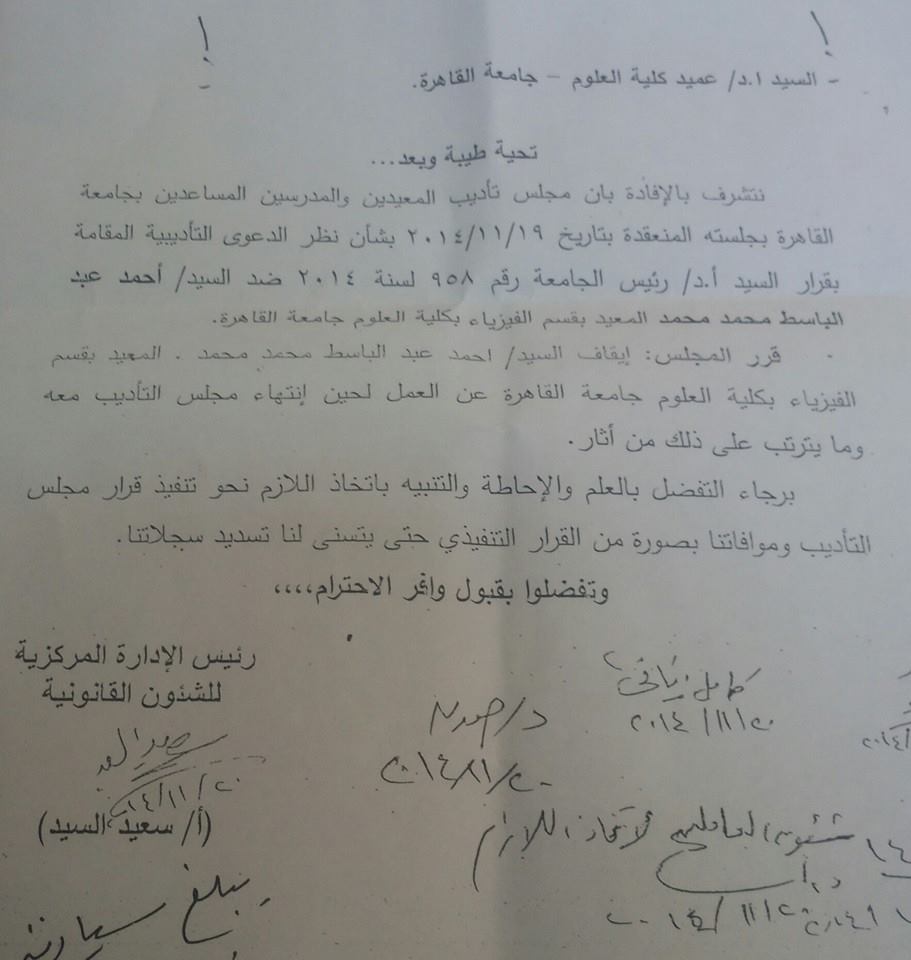 ! !
- السيد ا.د/ عميد كلية العلوم - جامعة القاهرة.
تحية طيبة وبعد...
نتشرف بالإفادة بان مجلس تأديب المعيدين والمدرسين المساعدين بجامعة
القاهرة بجلسته المنعقدة بتاريخ ٢٠١٤/١١/١٩ بشأن نظر الدعوى التأديبية المقامة
بقرار السيد أ.د/ رئيس الجامعة رقم ٩٥٨ لسنة ٢٠١٤ ضد السيد/ أحمد عبد
الباسط محمد محمد المعيد بقسم الفيزياء بكلية العلوم جامعة القاهرة.
· قرر المجلس: إيقاف السيد/ احمد عبد الباسط محمد محمد . المعيد بقسم
الفيزياء بكلية العلوم جامعة القاهرة عن العمل لحين إنتهاء مجلس التأديب معه
وما يترتب على ذلك من أثار.
برجاء التفضل بالعلم والإحاطة والتنبيه باتخاذ اللازم نحو تنفيذ قرار مجلس
التأديب وموافاتنا بصورة من القرار التنفيذي حتى يتسنى لنا تسديد سجلاتنا.
وتفضلوا بقبول وافر الاحترام،،،،
رئيس الإدارة المركزية
للشئون القانونية
٢٠١٤/١١/٢٠
٢٠١٤/١١/٢٠
١٤/١١/٢٠
(أ/ سعيد السيد)
شئون العاملين لاتخاذ اللازم
٢٠١٤/١١/٢٠
يبلغ سيادته